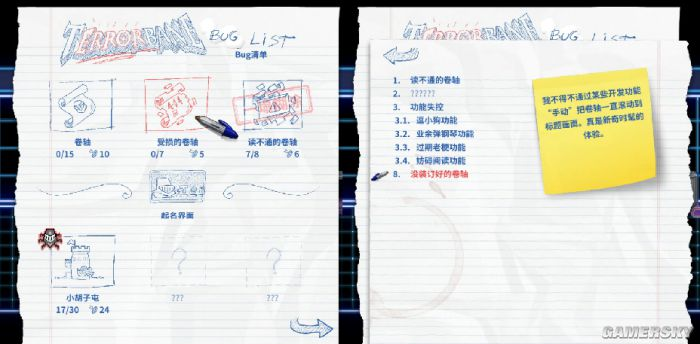 TERRORBANE BUG LIST
Bug清单
卷轴
0/15 10
受损的卷轴
0/7 5
读不通的卷轴
7/8 6
起名界面
小胡子屯
17/30 24
???
???
1. 读不通的卷轴
2. ??????
3. 功能失控
3.1. 逗小狗功能
3.2. 业余弹钢琴功能
3.3. 过期老梗功能
3.4. 妨碍阅读功能
8. 没装订好的卷轴
我不得不通过某些开发功能
“手动”把卷轴一直滚动到
标题画面。真是新奇时髦的
体验。
GAMERSKY